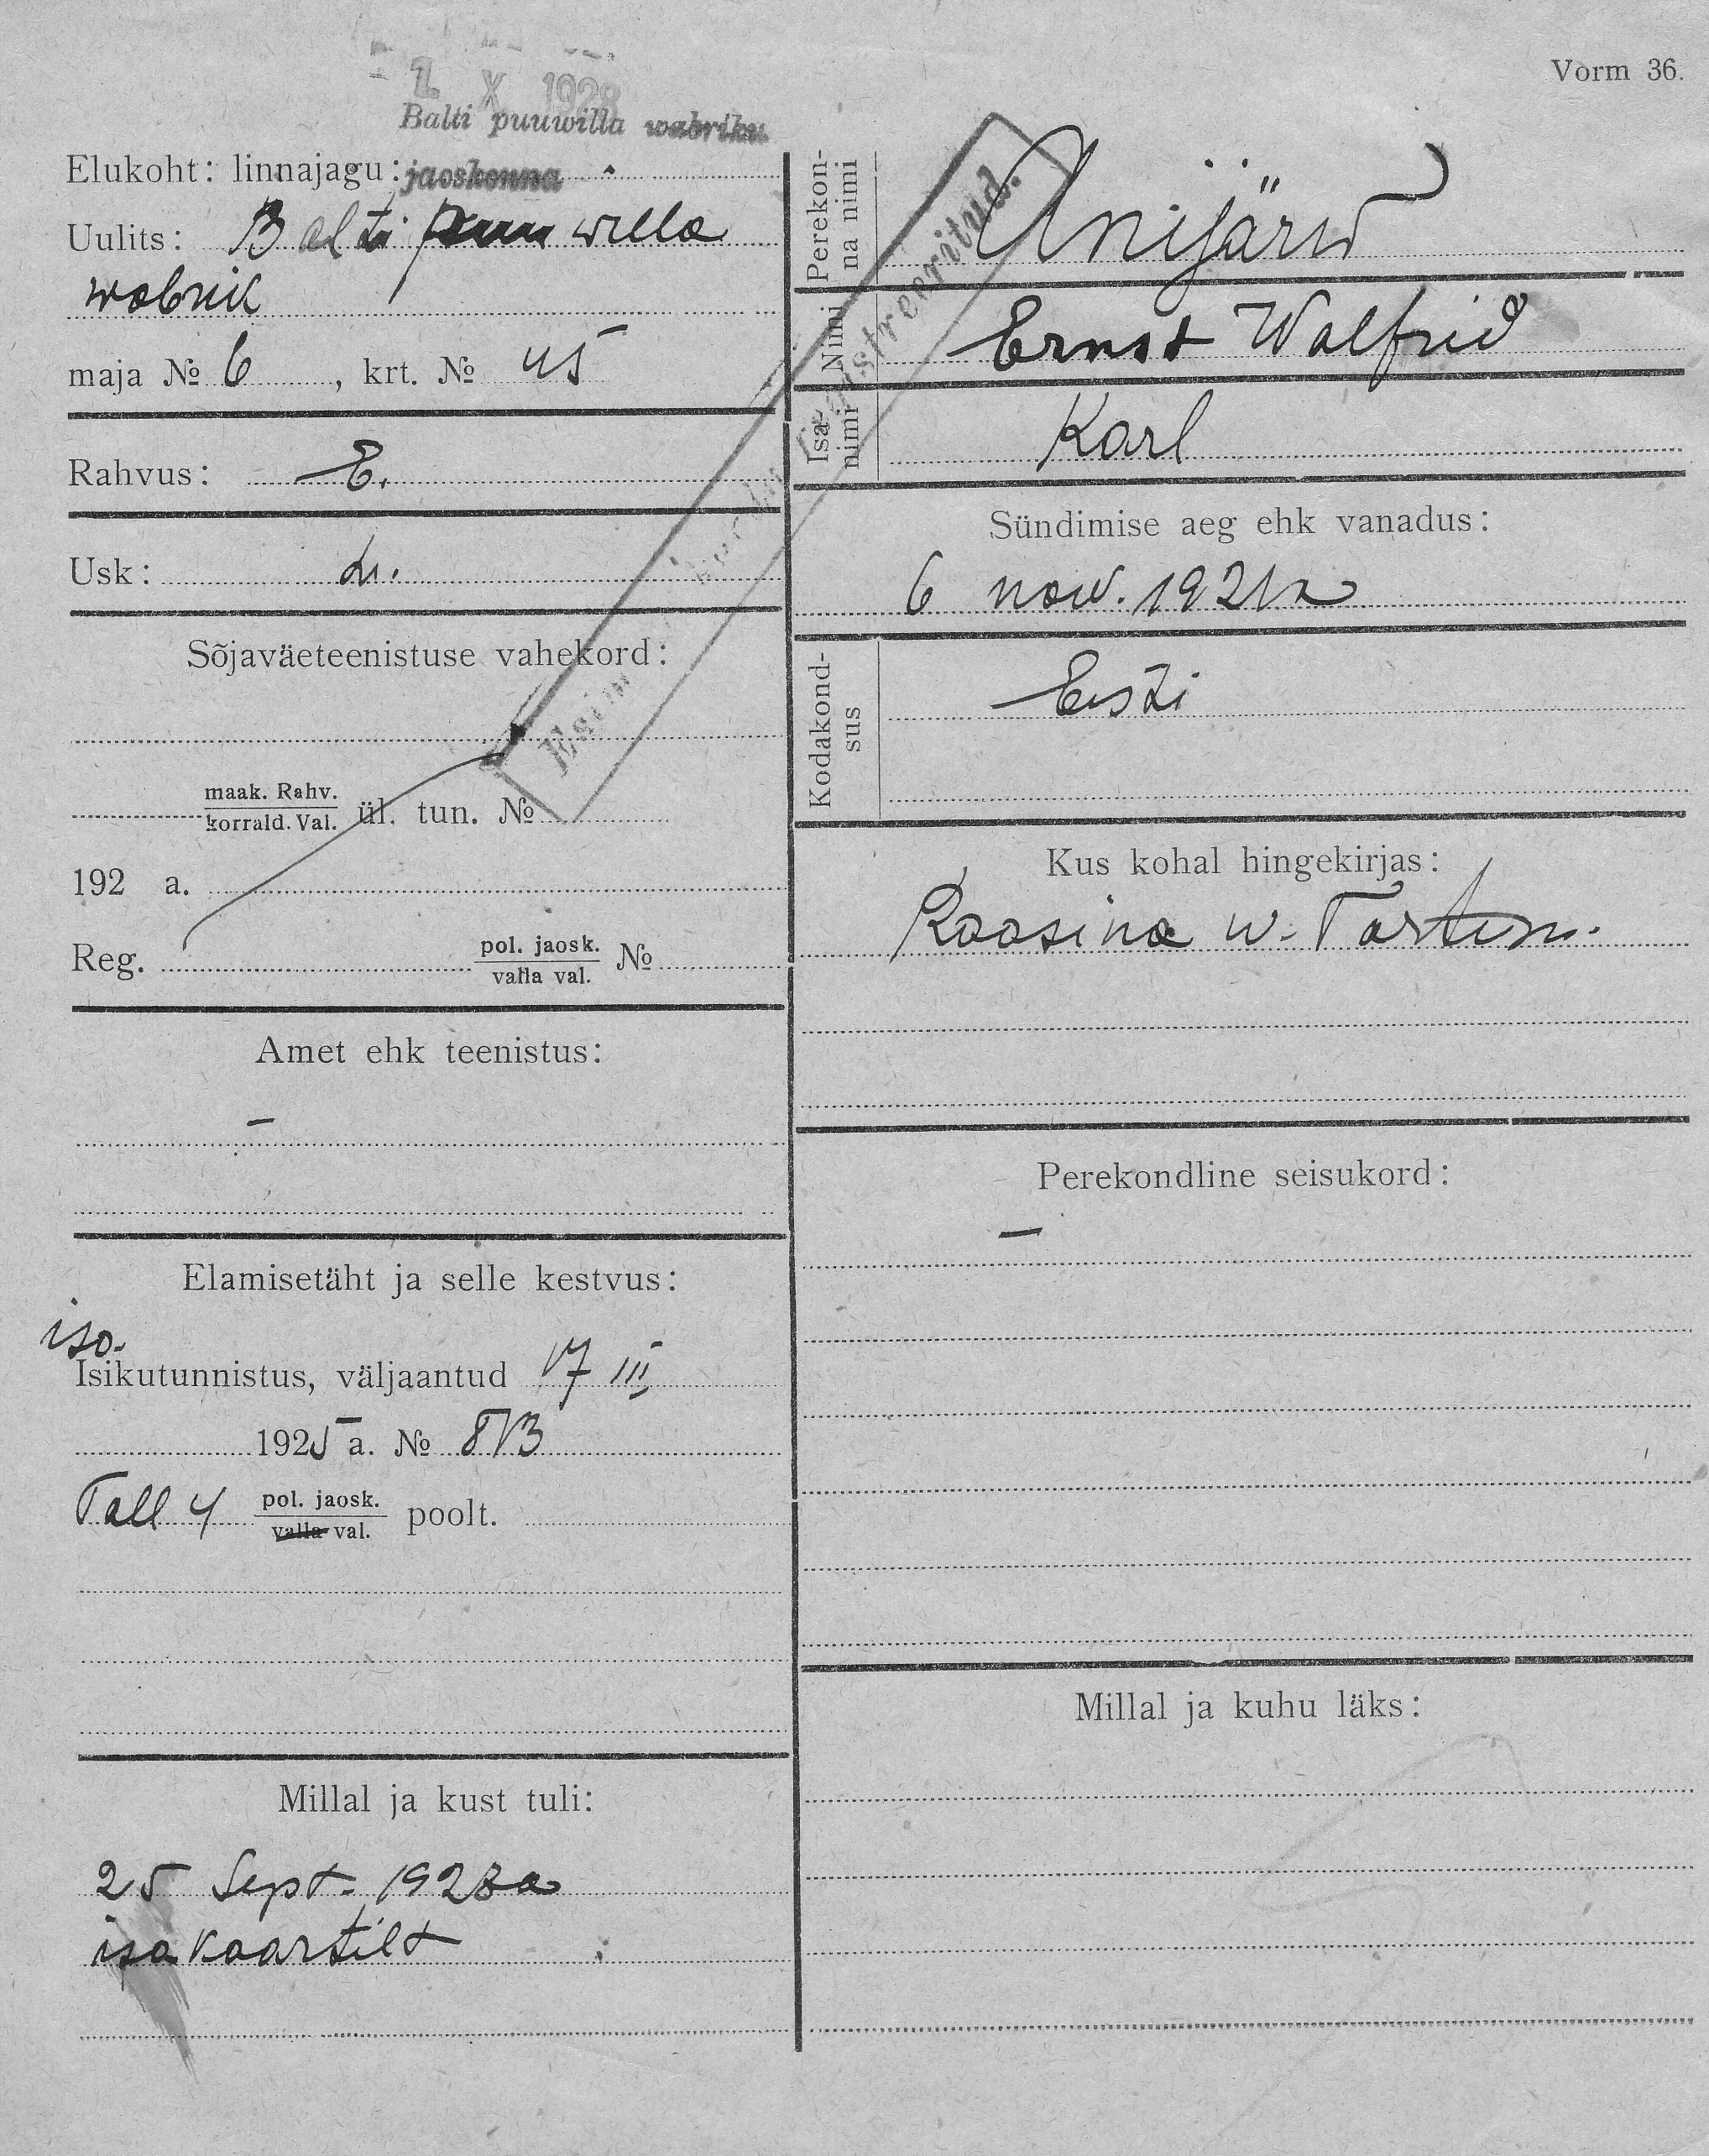 Vorm 36.
1 X 1928
Balti puuwilla wabriku
Elukoht: linnajagu: jaoskonna
Uulits: Balti puuwilla
wabrik
maja № 6, krt. № 45
Rahvus: E.
Usk: Lu.
Sõjaväeteenistuse vahekord:
maak. Rahv.
korrald. Val. ül. tun. №
192 a.
Reg. pol. jaosk. №
valla val.
Amet ehk teenistus:
–
Elamisetäht ja selle kestvus:
isa.
Isikutunnistus, väljaantud 17 III
1925 a. № 813
Tall 4 pol. jaosk. poolt.
valla val.
Millal ja kust tuli:
25 Sept. 1928 a
isa kaartilt
Perekon-
na nimi
Unijärw
Nimi Ernst Walfrid
Isa-
nimi
Karl
registreeritud.
Sündimise aeg ehk vanadus:
6 now. 1921 a
Kodakond-
sus
Eesti
Kus kohal hingekirjas:
Kaasina w. Tartum.
Perekondline seisukord:
–
Millal ja kuhu läks: